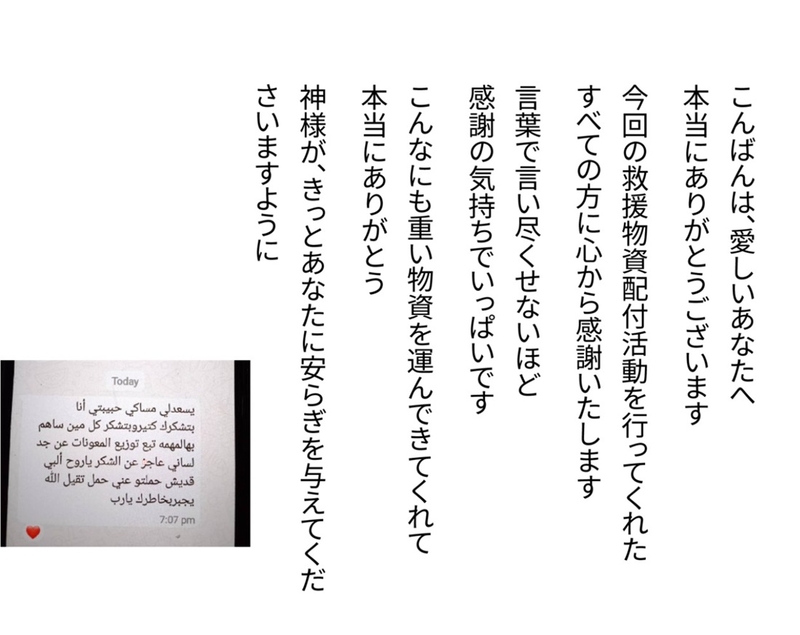 こんばんは、愛しいあなたへ
本当にありがとうございます
今回の救援物資配付活動を行ってくれた
すべての方に心から感謝いたします
言葉で言い尽くせないほど
感謝の気持ちでいっぱいです
こんなにも重い物資を運んできてくれて
本当にありがとう
神様が、きっとあなたに安らぎを与えてくだ
さいますように
Today
يسعدلي مساكي حبيبتي أنا
بتشكرك كتيروبتشكر كل مين ساهم
بهالمهمه تبع توزيع المعونات عن جد
لساني عاجز عن الشكر ياروح ألبي
قديش حملتو عني حمل تقيل الله
يجبربخاطرك يارب
7:07 pm